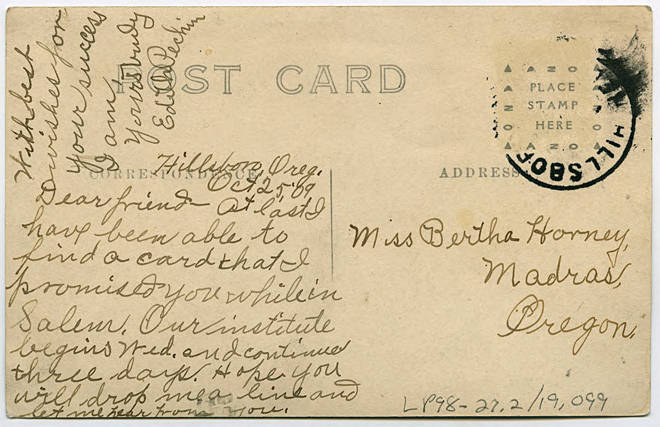 POST CARD
CORRESPONDENCE
ADDRESS
PLACE
STAMP
HERE
HILLSBO
Hillsboro, Oreg.
Oct. 25, '09
Dear friend - At last I
have been able to
find a card that I
promised you while in
Salem. Our institute
begins Wed. and continues
three days. Hope you
will drop me a line and
let me hear from you.
With best
wishes for
your success
I am
Yours truly
Edith
Miss Bertha Horney,
Madras,
Oregon.
LP98-27.2/19,099